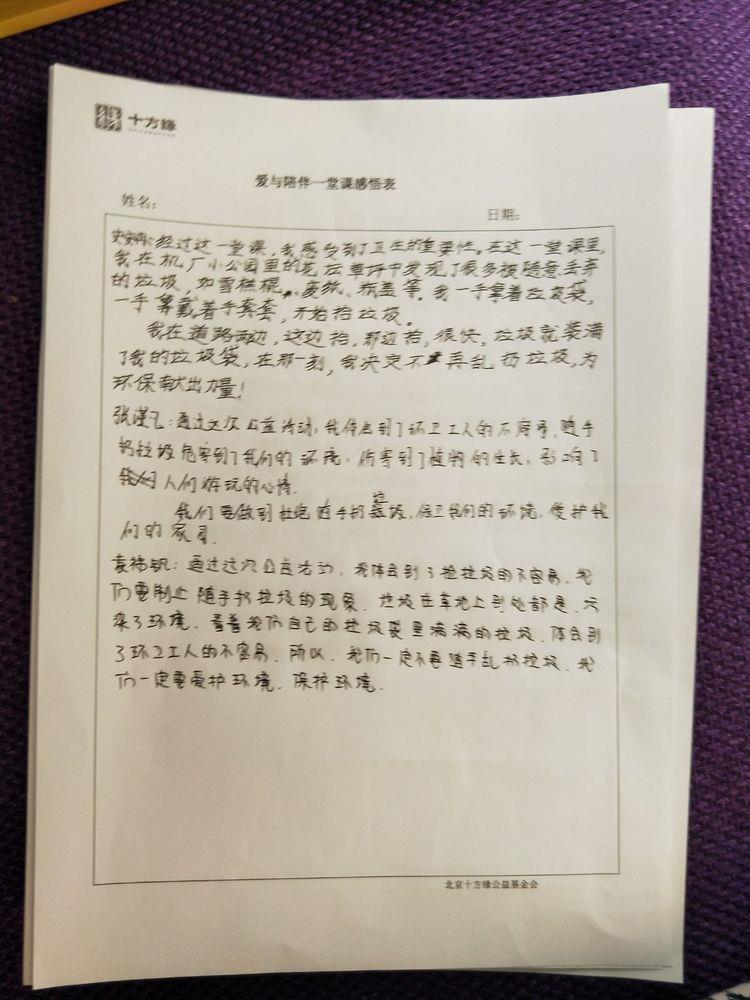 十方缘
爱与陪伴一堂课感悟表
姓名:
日期:
经过这一堂课,我感受到了卫生的重要性。在这一堂课里,
我在机厂小公园里的花坛草坪中发现了很多被随意丢弃
的垃圾,如雪糕棍、废纸、瓶盖等。我一手拿着垃圾袋,
一手戴着手套,开始拾垃圾。
我在道路两边,这边拾,那边拾,很快,垃圾就装满
了我的垃圾袋,在那一刻,我决定不再乱扔垃圾,为
环保献出力量!
张滢飞:通过这次公益活动,我体会到了环卫工人的不容易,随手
扔垃圾危害到了我们的环境,伤害到了植物的生长,影响了
人们游玩的心情.
我们要做到杜绝随手扔垃圾,保卫我们的环境,爱护我
们的家园;
通过这次公益活动,我体会到了捡垃圾的不容易.我
们要制止随手扔垃圾的现象.垃圾在草地上到处都是.污
染了环境.看着我们自己的垃圾袋里满满的垃圾.体会到
了环卫工人的不容易.所以.我们一定不再随手乱扔垃圾.我
们一定要爱护环境.保护环境.
北京十方缘公益基金会